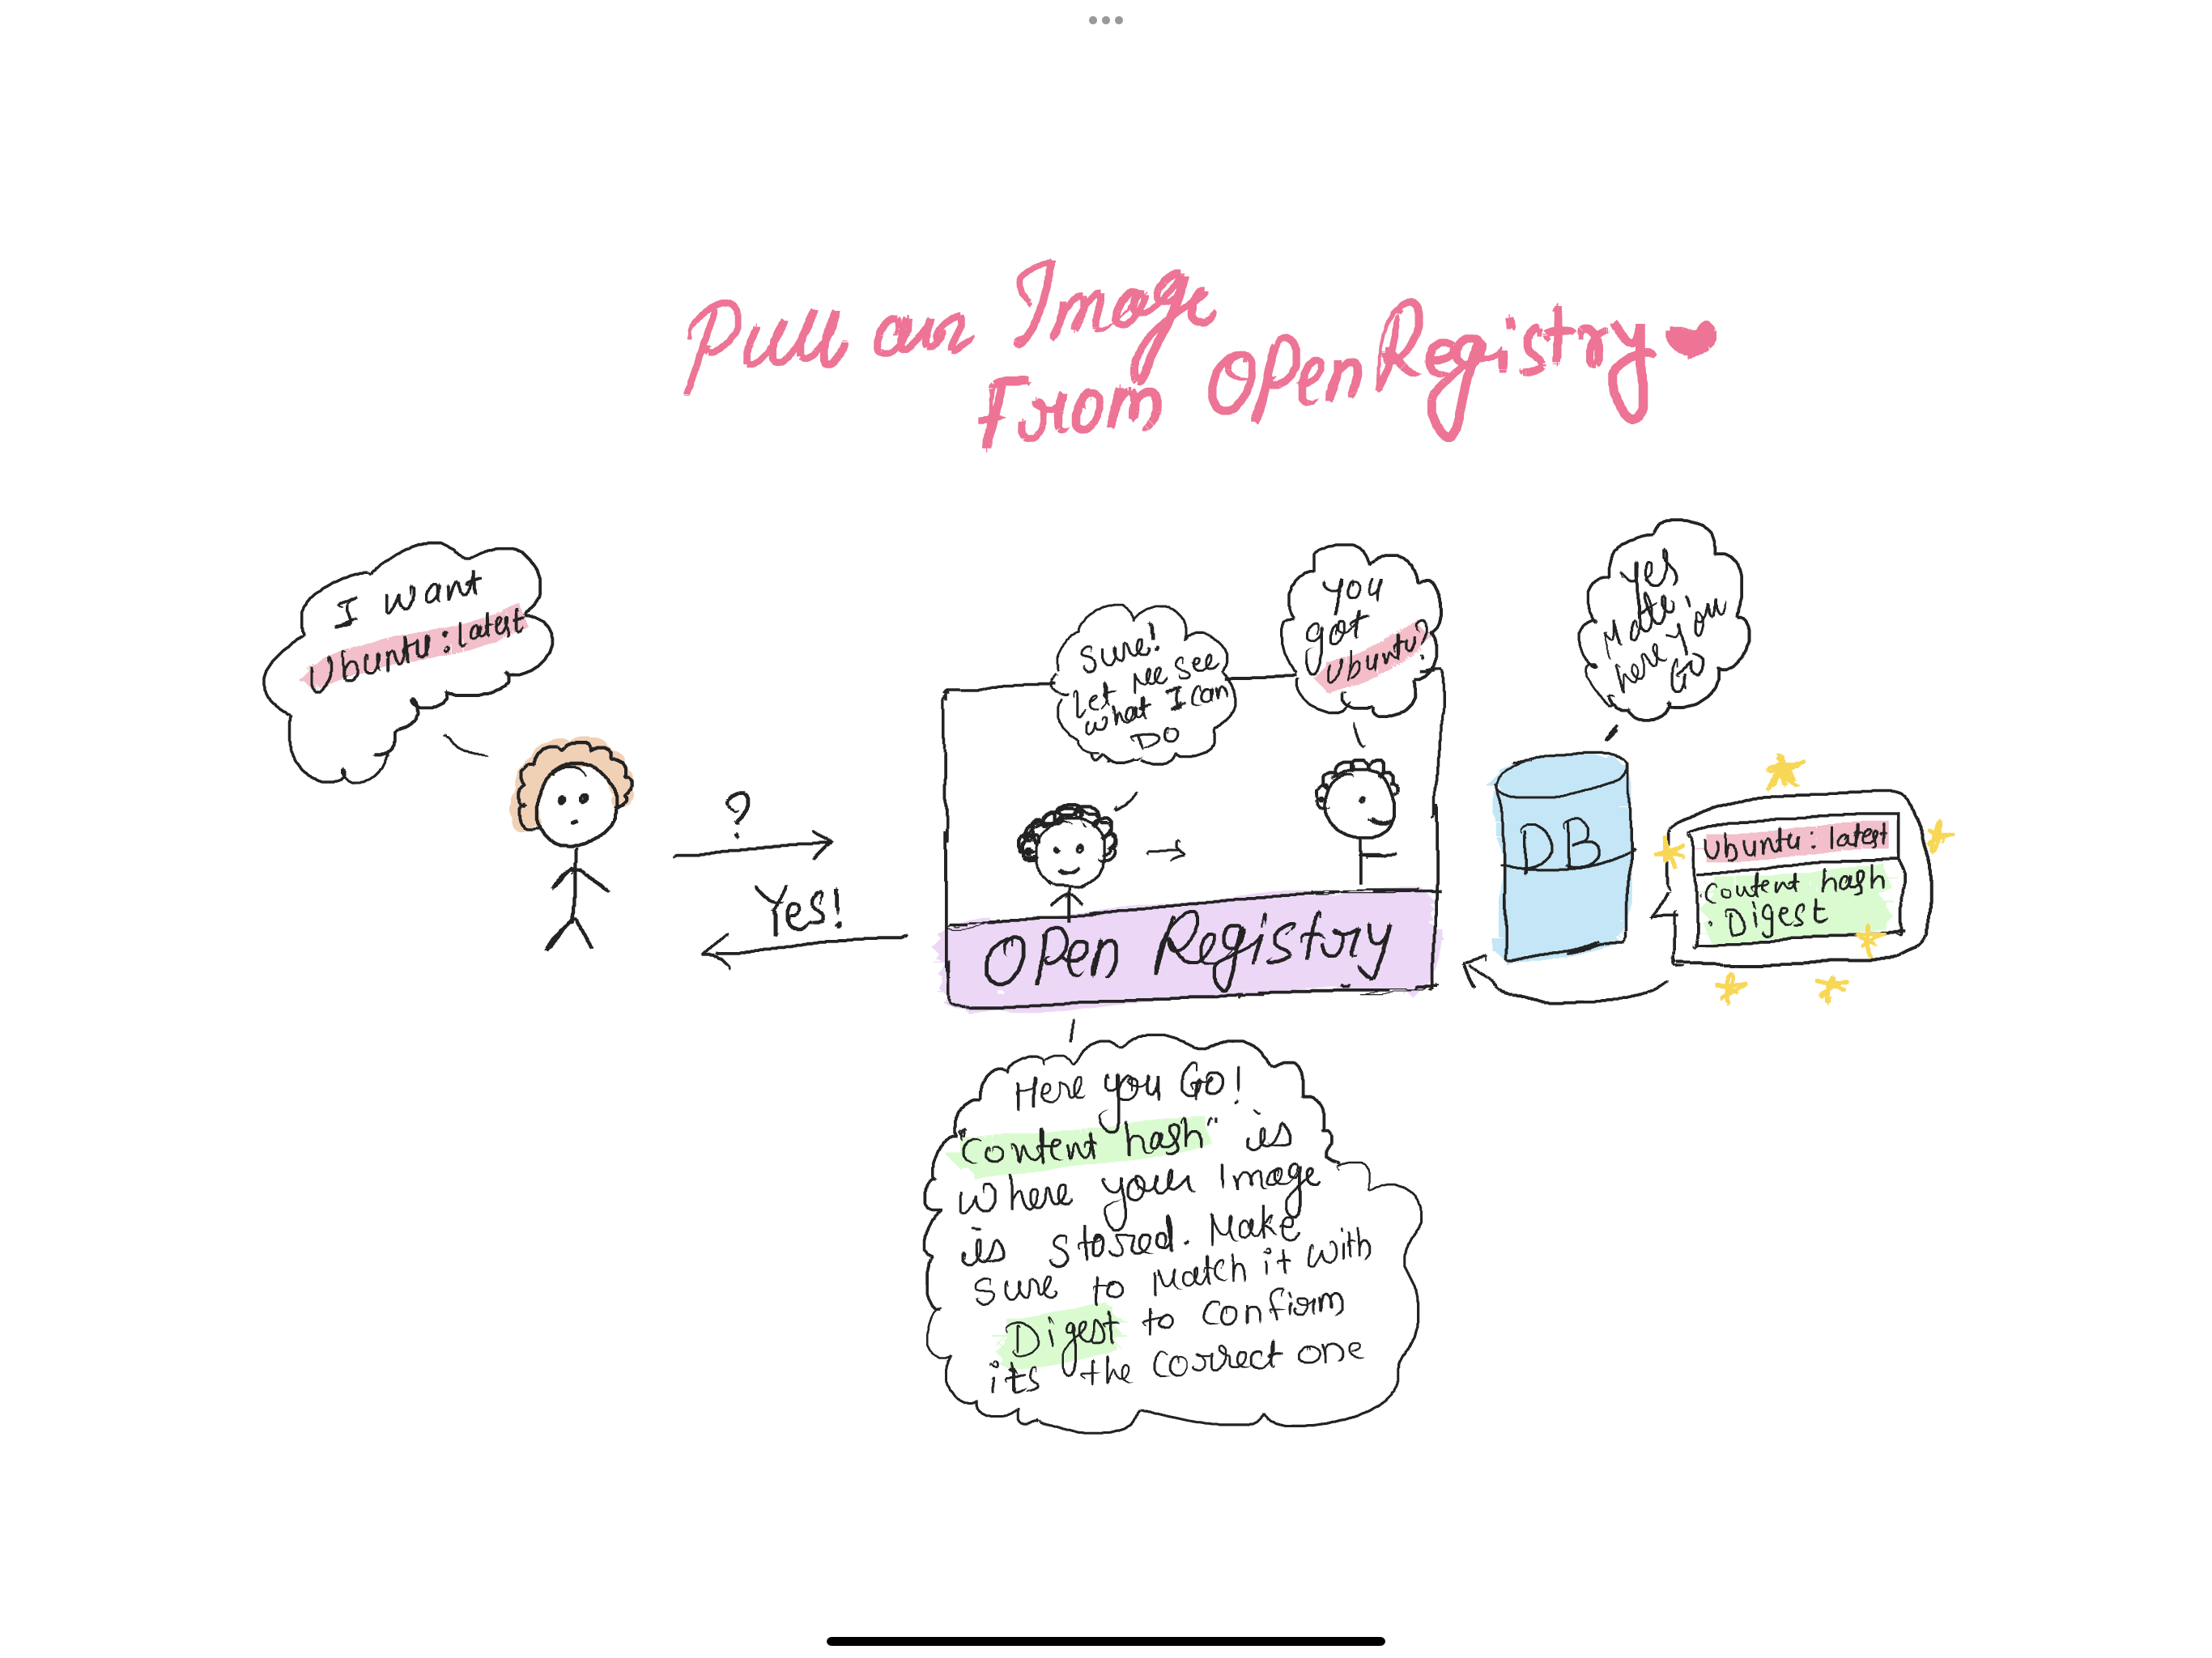 Pull an Image
From OpenRegistry
I want
Ubuntu:latest
?
Yes!
Sure!
Let me see
what I can
DO
You
got
Ubuntu?
Yes
Mate
here you
GO
DB
Ubuntu: latest
Content hash
Digest
Open Registry
Here you Go!
"Content hash" is
where your Image
is stored. Make
sure to match it with
Digest to confirm
its the correct one